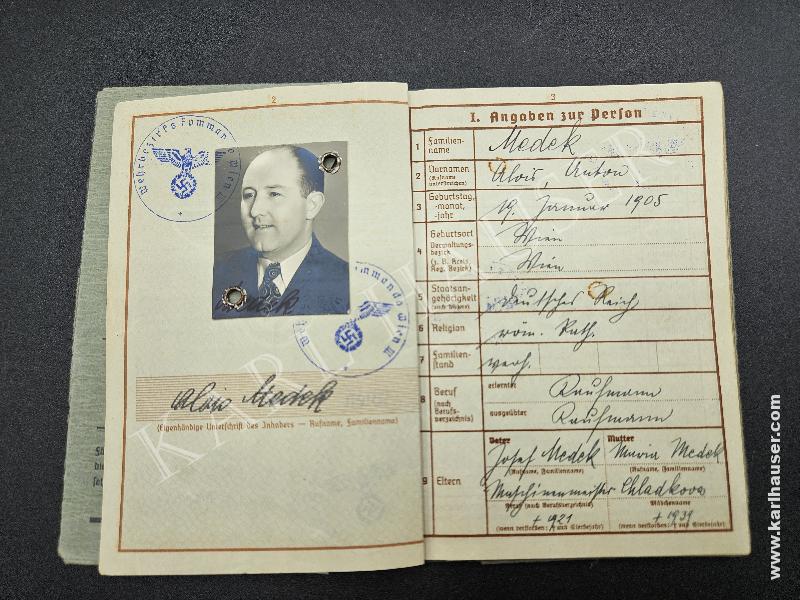 2
Wehrbezirks Kommando Wien III
Kommando Wien III
Alois Medek
(Eigenhändige Unterschrift des Inhabers — Rufname, Familienname)
KARL HAUSER
3
I. Angaben zur Person
1 Familien-
name
Medek
2 Vornamen
(Rufname
unterstreichen)
Alois Anton
3 Geburtstag,
-monat,
-jahr
19. Januar 1905
4 Geburtsort
Verwaltungs-
bezirk
(z. B. Kreis,
Reg. Bezirk)
Wien
Wien
5 Staatsan-
gehörigkeit
(auch frühere)
Deutsches Reich
6 Religion
röm. Kath.
7 Familien-
stand
verh.
8 Beruf
(nach
Berufs-
verzeichnis)
erlernter
Kaufmann
ausgeübter
Kaufmann
9 Eltern
Vater
Josef Medek
(Rufname, Familienname)
Maschinenmeister
Beruf (nach Berufsverzeichnis)
+ 1921
(wenn verstorben: † und Sterbejahr)
Mutter
Maria Medek
(Rufname, Familienname)
Chladkova
Mädchenname
+ 1939
(wenn verstorben: † und Sterbejahr)
www.karlhauser.com